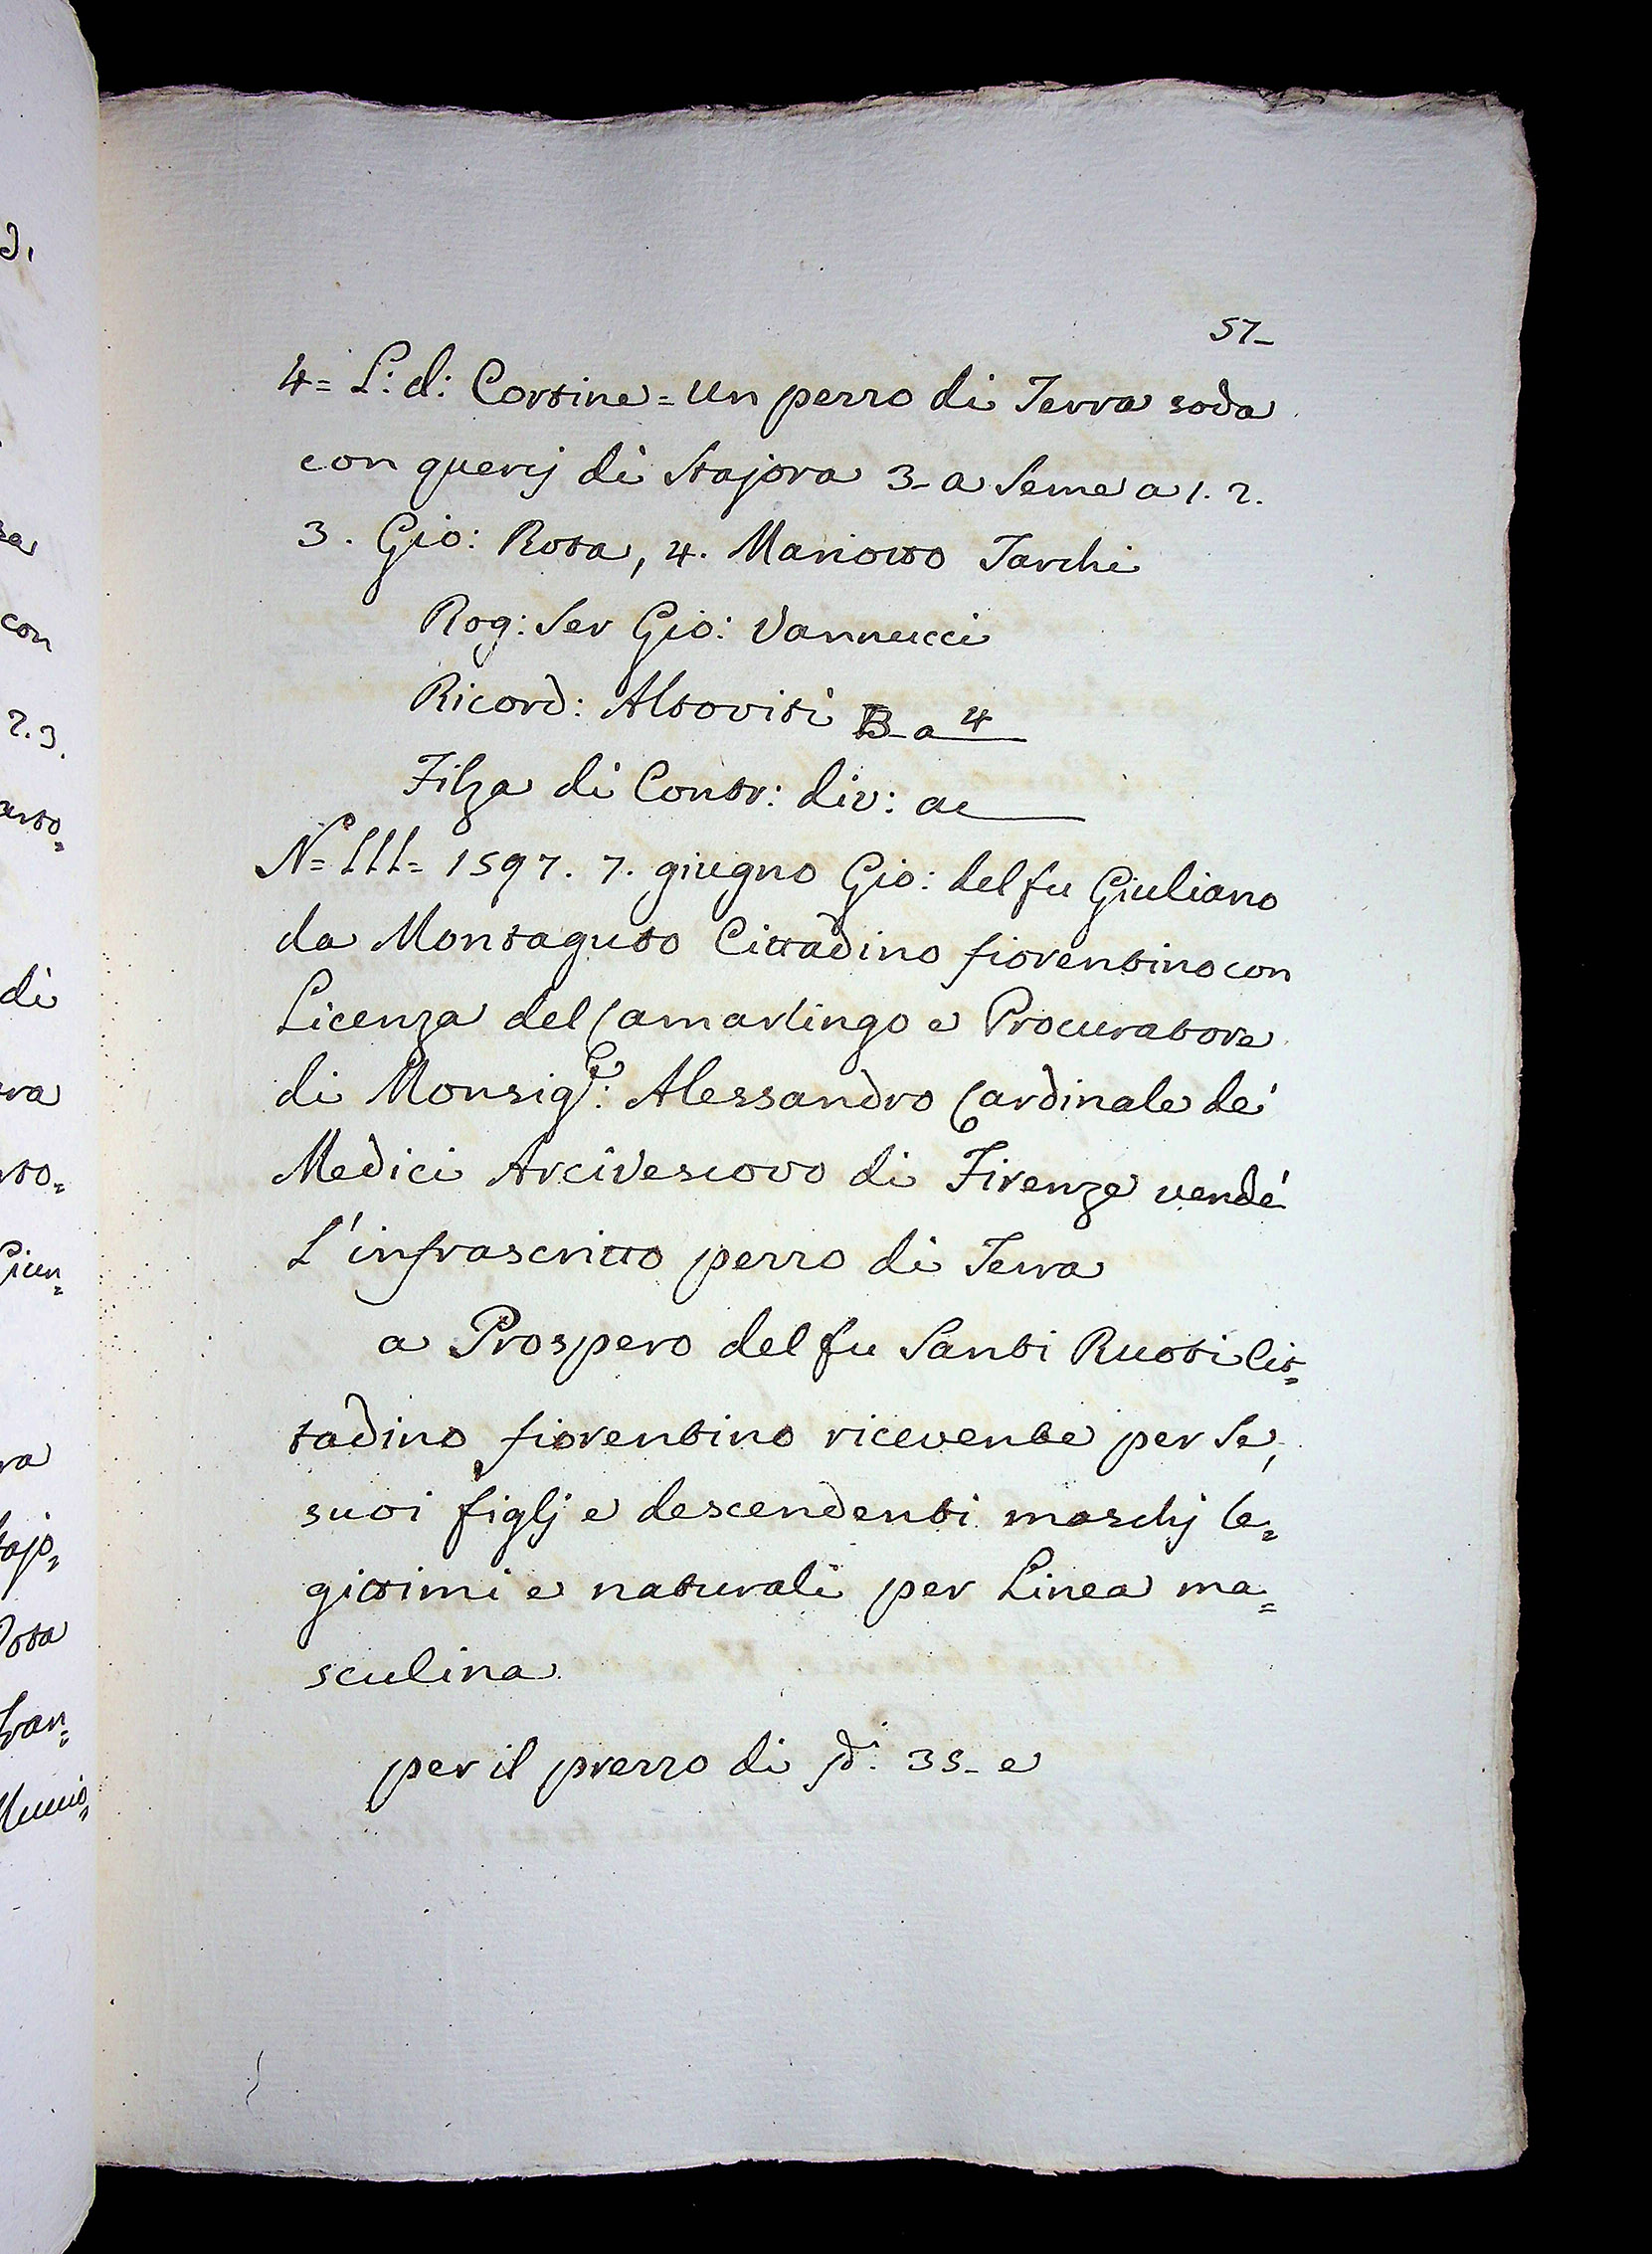 57-
4= L: d: Cortine = Un pezzo di Terra soda
con quercj di Stajora 3- a Seme a 1. 2.
3. Gio: Rota, 4. Mariotto Tarchi
Rog: Ser Gio: Vannucci
Ricord: Altoviti B- a 4
Filza di Contr: div: ac
N= III= 1597. 7. giugno Gio: del fu Giuliano
da Montaguto Cittadino fiorentino con
Licenza del Camarlingo e Procuratore
di Monsig.r: Alessandro Cardinale de'
Medici Arcivescovo di Firenze vendé
L'infrascritto pezzo di Terra
a Prospero del fu Santi Ruoti Cit=
tadino fiorentino ricevente per Se,
suoi figlj e descendenti maschj le=
gittimi e naturali per Linea ma=
sculina
per il prezzo di 35- e